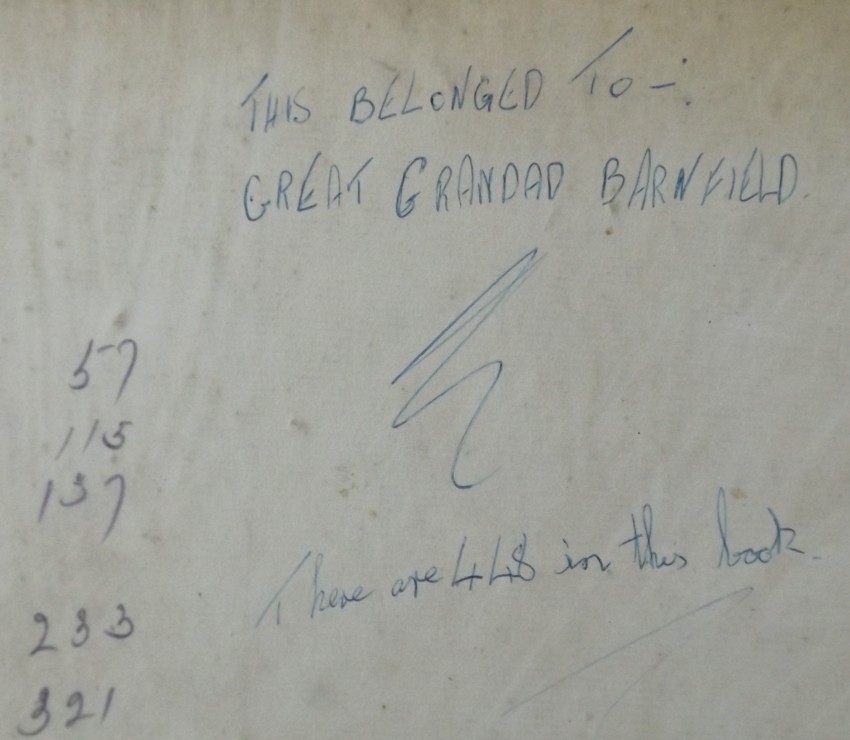 THIS BELONGED TO -:
GREAT GRANDAD BARNFIELD.
57
115
137
There are 448 in this book.
233
321